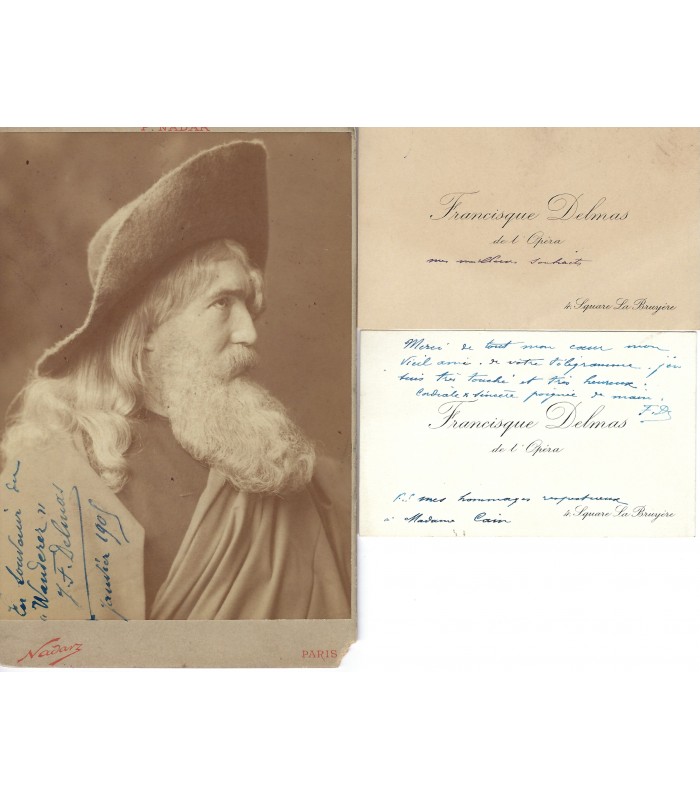 P. NADAR
En souvenir du
"Wanderer"
J. F. Delmas
Janvier 1905
Nadar
PARIS
Francisque Delmas
de l'Opéra
mes meilleurs souhaits
4. Square La Bruyère
Merci de tout mon cœur mon
vieil ami de votre télégramme. j'en
suis très touché et très heureux.
Cordiale & sincère poignée de main.
F. D
Francisque Delmas
de l'Opéra
P.S mes hommages respectueux
à Madame Cain
4. Square La Bruyère